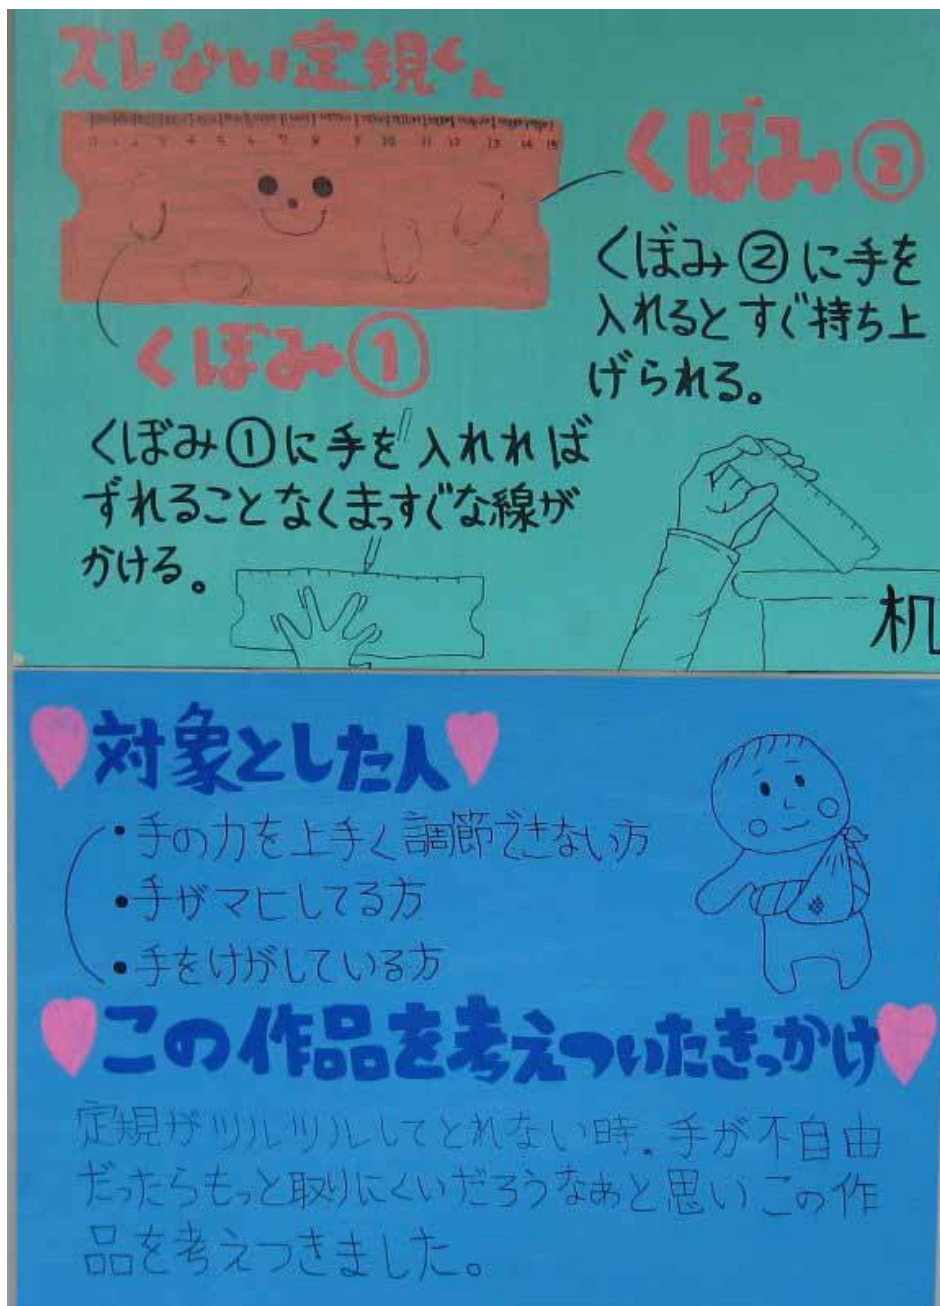 ズレない定規くん
0 1 2 3 4 5 6 7 8 9 10 11 12 13 14 15
くぼみ②
くぼみ②に手を
入れるとすぐ持ち上
げられる。
くぼみ①
くぼみ①に手を入れれば
ずれることなくまっすぐな線が
かける。
机
対象とした人
・手の力を上手く調節できない方
・手がマヒしてる方
・手をけがしている方
この作品を考えついたきっかけ
定規がツルツルしてとれない時、手が不自由
だったらもっと取りにくいだろうなあと思いこの作
品を考えつきました。